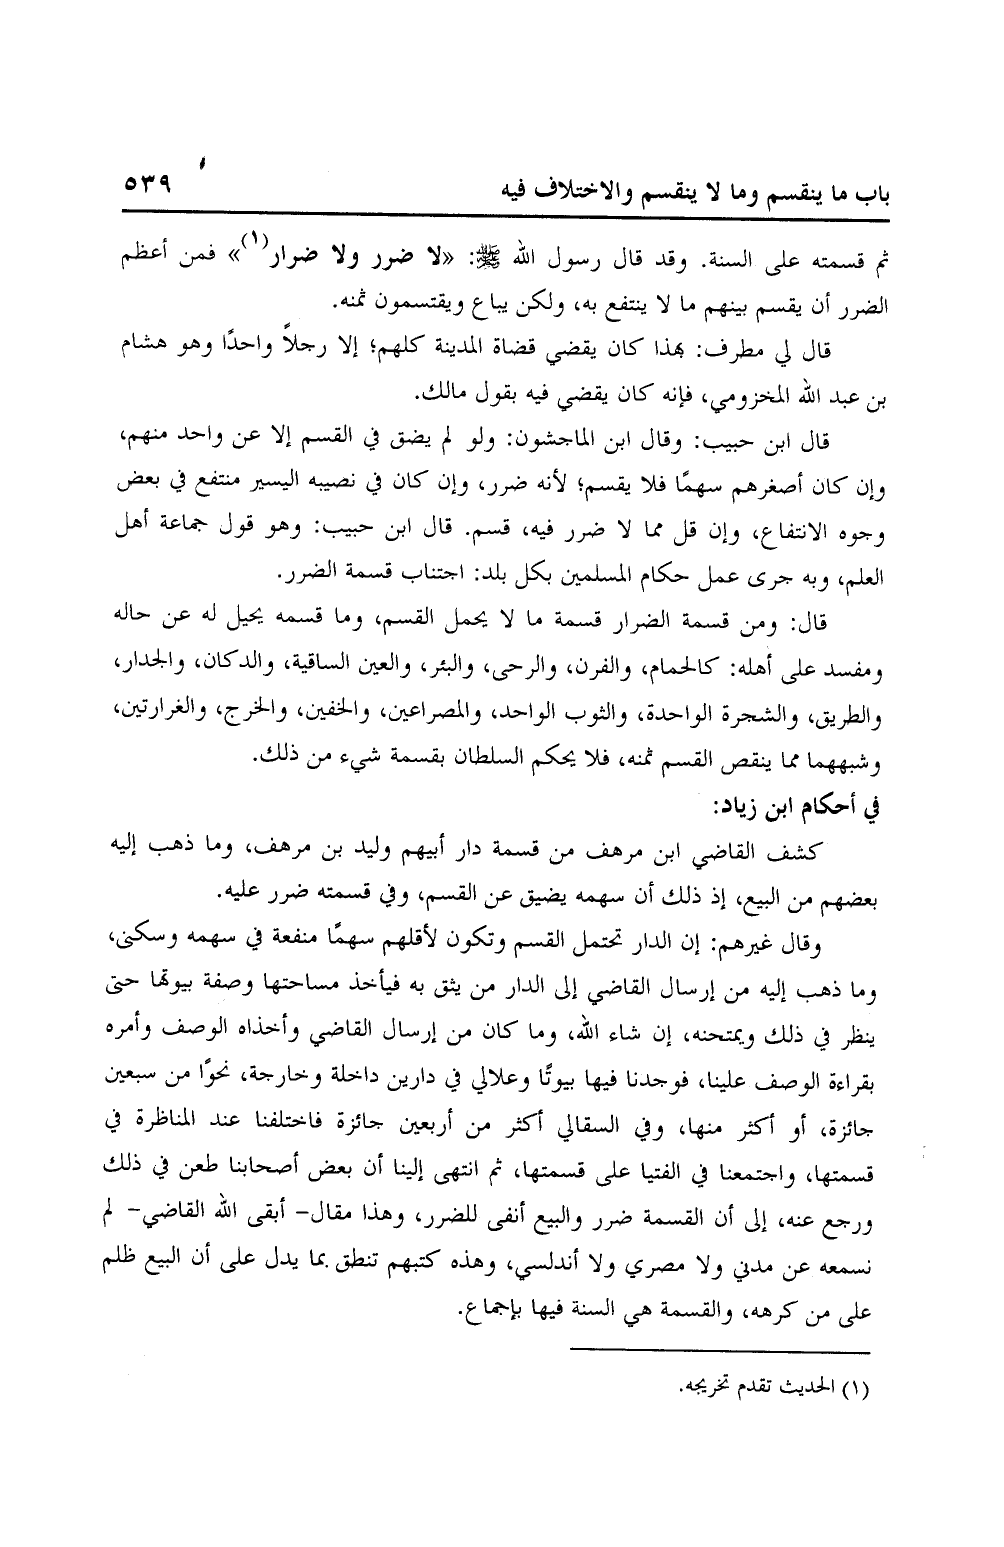 باب ما ينقسم وما لا ينقسم والاختلاف فيه ٥٣٩
ثم قسمته على السنة. وقد قال رسول الله ﷺ: «لا ضرر ولا ضرار(١)» فمن أعظم
الضرر أن يقسم بينهم ما لا ينتفع به، ولكن يباع ويقتسمون ثمنه.
قال لي مطرف: بهذا كان يقضي قضاة المدينة كلهم؛ إلا رجلاً واحدًا وهو هشام
بن عبد الله المخزومي، فإنه كان يقضي فيه بقول مالك.
قال ابن حبيب: وقال ابن الماجشون: ولو لم يضق في القسم إلا عن واحد منهم،
وإن كان أصغرهم سهمًا فلا يقسم؛ لأنه ضرر، وإن كان في نصيبه اليسير منتفع في بعض
وجوه الانتفاع، وإن قل مما لا ضرر فيه، قسم. قال ابن حبيب: وهو قول جماعة أهل
العلم، وبه جرى عمل حكام المسلمين بكل بلد: اجتناب قسمة الضرر.
قال: ومن قسمة الضرار قسمة ما لا يحمل القسم، وما قسمه يحيل له عن حاله
ومفسد على أهله: كالحمام، والفرن، والرحى، والبئر، والعين الساقية، والدكان، والجدار،
والطريق، والشجرة الواحدة، والثوب الواحد، والمصراعين، والخفين، والخرج، والغرارتين،
وشبههما مما ينقص القسم ثمنه، فلا يحكم السلطان بقسمة شيء من ذلك.
في أحكام ابن زياد:
كشف القاضي ابن مرهف من قسمة دار أبيهم وليد بن مرهف، وما ذهب إليه
بعضهم من البيع، إذ ذلك أن سهمه يضيق عن القسم، وفي قسمته ضرر عليه.
وقال غيرهم: إن الدار تحتمل القسم وتكون لأقلهم سهمًا منفعة في سهمه وسكنى،
وما ذهب إليه من إرسال القاضي إلى الدار من يثق به فيأخذ مساحتها وصفة بيوتها حتى
ينظر في ذلك ويمتحنه، إن شاء الله، وما كان من إرسال القاضي وأخذاه الوصف وأمره
بقراءة الوصف علينا، فوجدنا فيها بيوتًا وعلالي في دارين داخلة وخارجة، نحوًا من سبعين
جائزة، أو أكثر منها، وفي السقالي أكثر من أربعين جائزة فاختلفنا عند المناظرة في
قسمتها، واجتمعنا في الفتيا على قسمتها، ثم انتهى إلينا أن بعض أصحابنا طعن في ذلك
ورجع عنه، إلى أن القسمة ضرر والبيع أنفى للضرر، وهذا مقال- أبقى الله القاضي- لم
نسمعه عن مدني ولا مصري ولا أندلسي، وهذه كتبهم تنطق بما يدل على أن البيع ظلم
على من كرهه، والقسمة هي السنة فيها بإجماع.
(١) الحديث تقدم تخريجه.